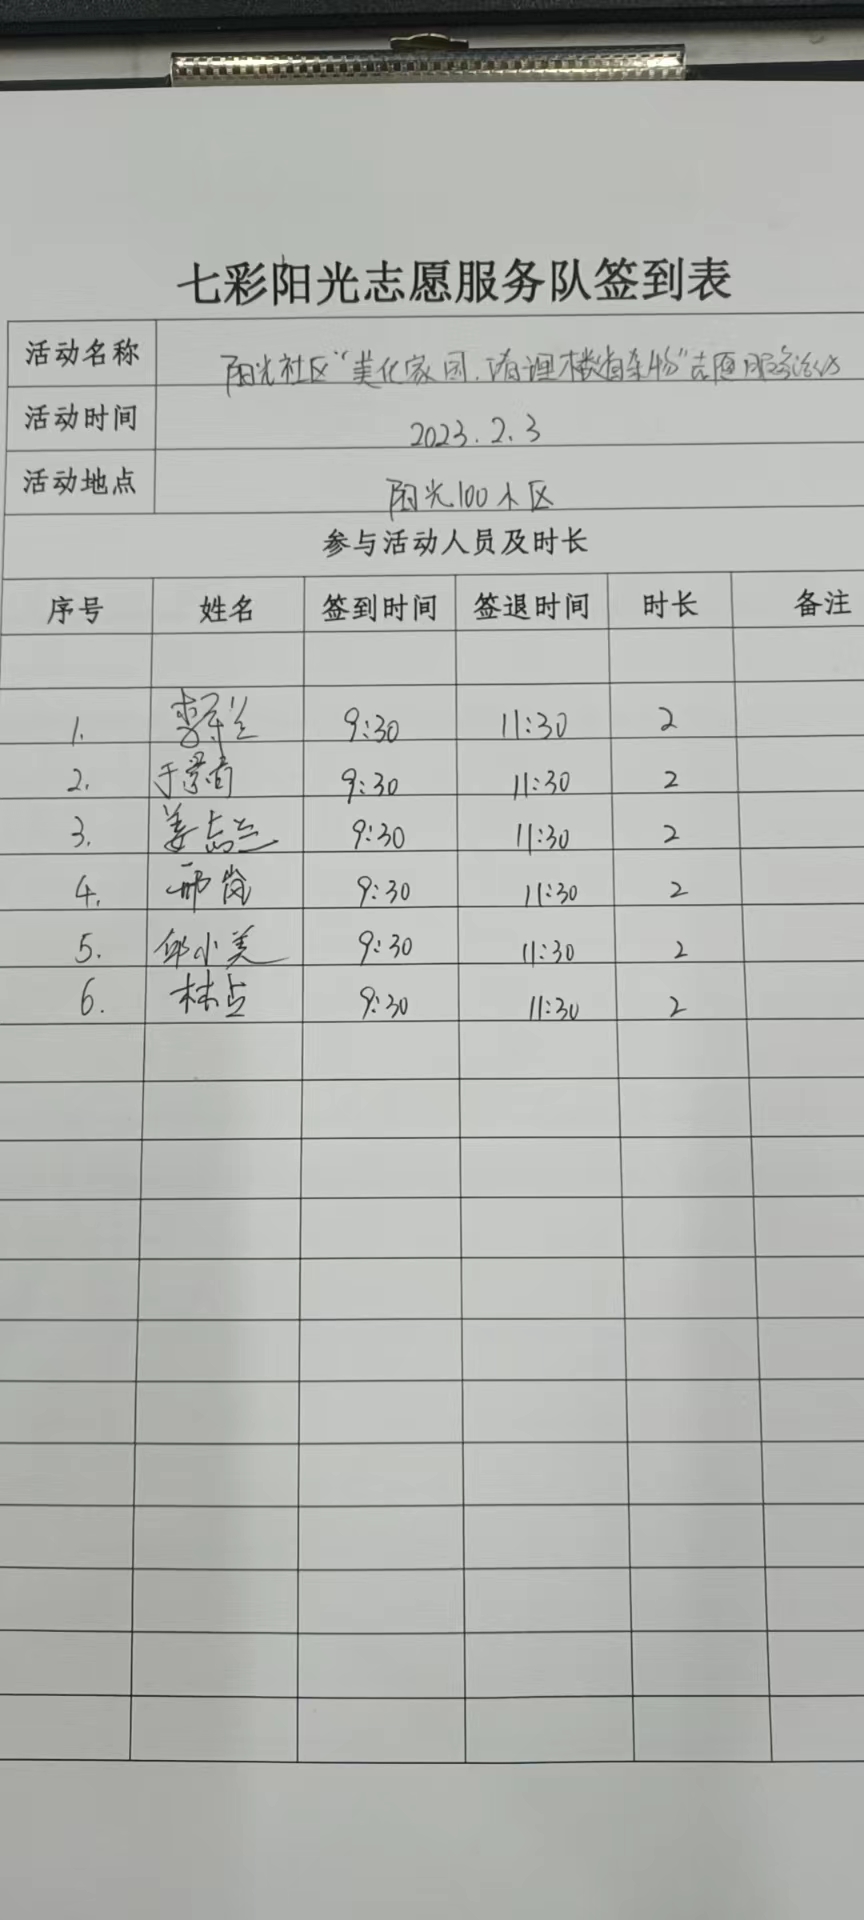 七彩阳光志愿服务队签到表
活动名称 阳光社区"美化家园.清理楼道杂物"志愿服务活动
活动时间 2023.2.3
活动地点 阳光100小区
参与活动人员及时长
序号 姓名 签到时间 签退时间 时长 备注
1. 9:30 11:30 2
2. 于景 9:30 11:30 2
3. 姜志兰 9:30 11:30 2
4. 邢岗 9:30 11:30 2
5. 邱小美 9:30 11:30 2
6. 林 9:30 11:30 2